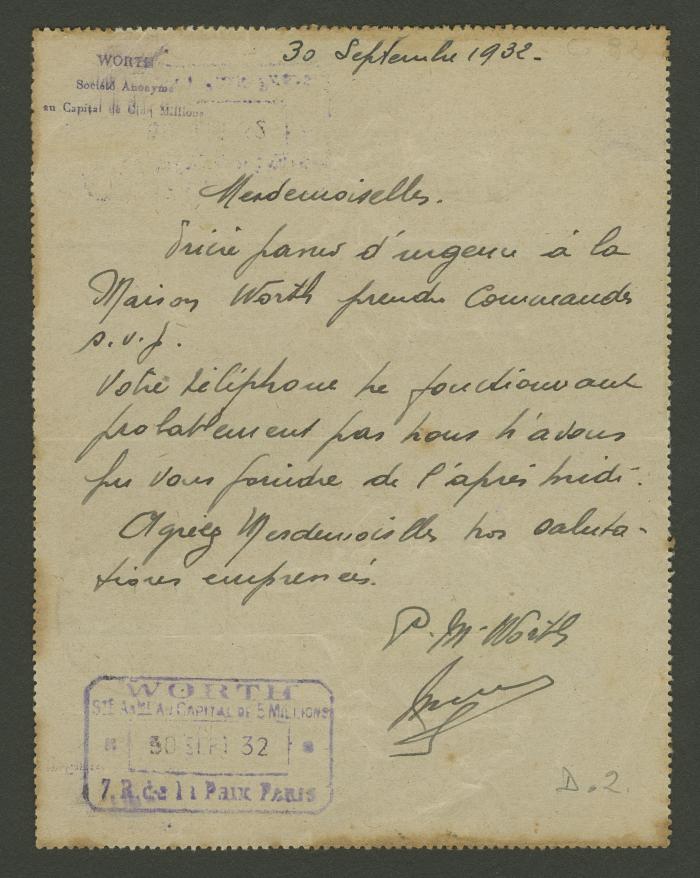 WORTH
Société Anonyme
au Capital de Cinq Millions
30 Septembre 1932.
Mesdemoiselles.
Prière passer d'urgence à la
Maison Worth prendre Commandes
s.v.p.
Votre téléphone ne fonctionnant
probablement pas nous n'avons
pu vous joindre de l'après midi.
Agréez Mesdemoiselles nos saluta-
tions empressées.
P. Mn Worth
WORTH
STÉ ANME AU CAPITAL DE 5 MILLIONS
30 SEPT 32
7, R. de la Paix PARIS
D.2.